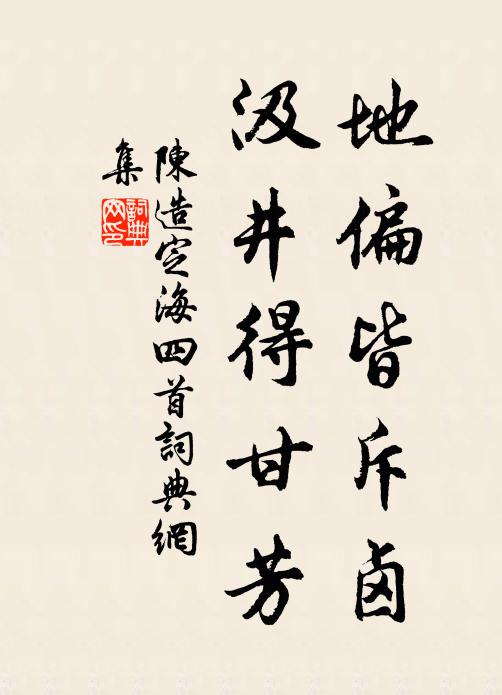 地偏皆斥卤
汲井得甘芳
陳造定海四首詞典網
集
詞典
网印